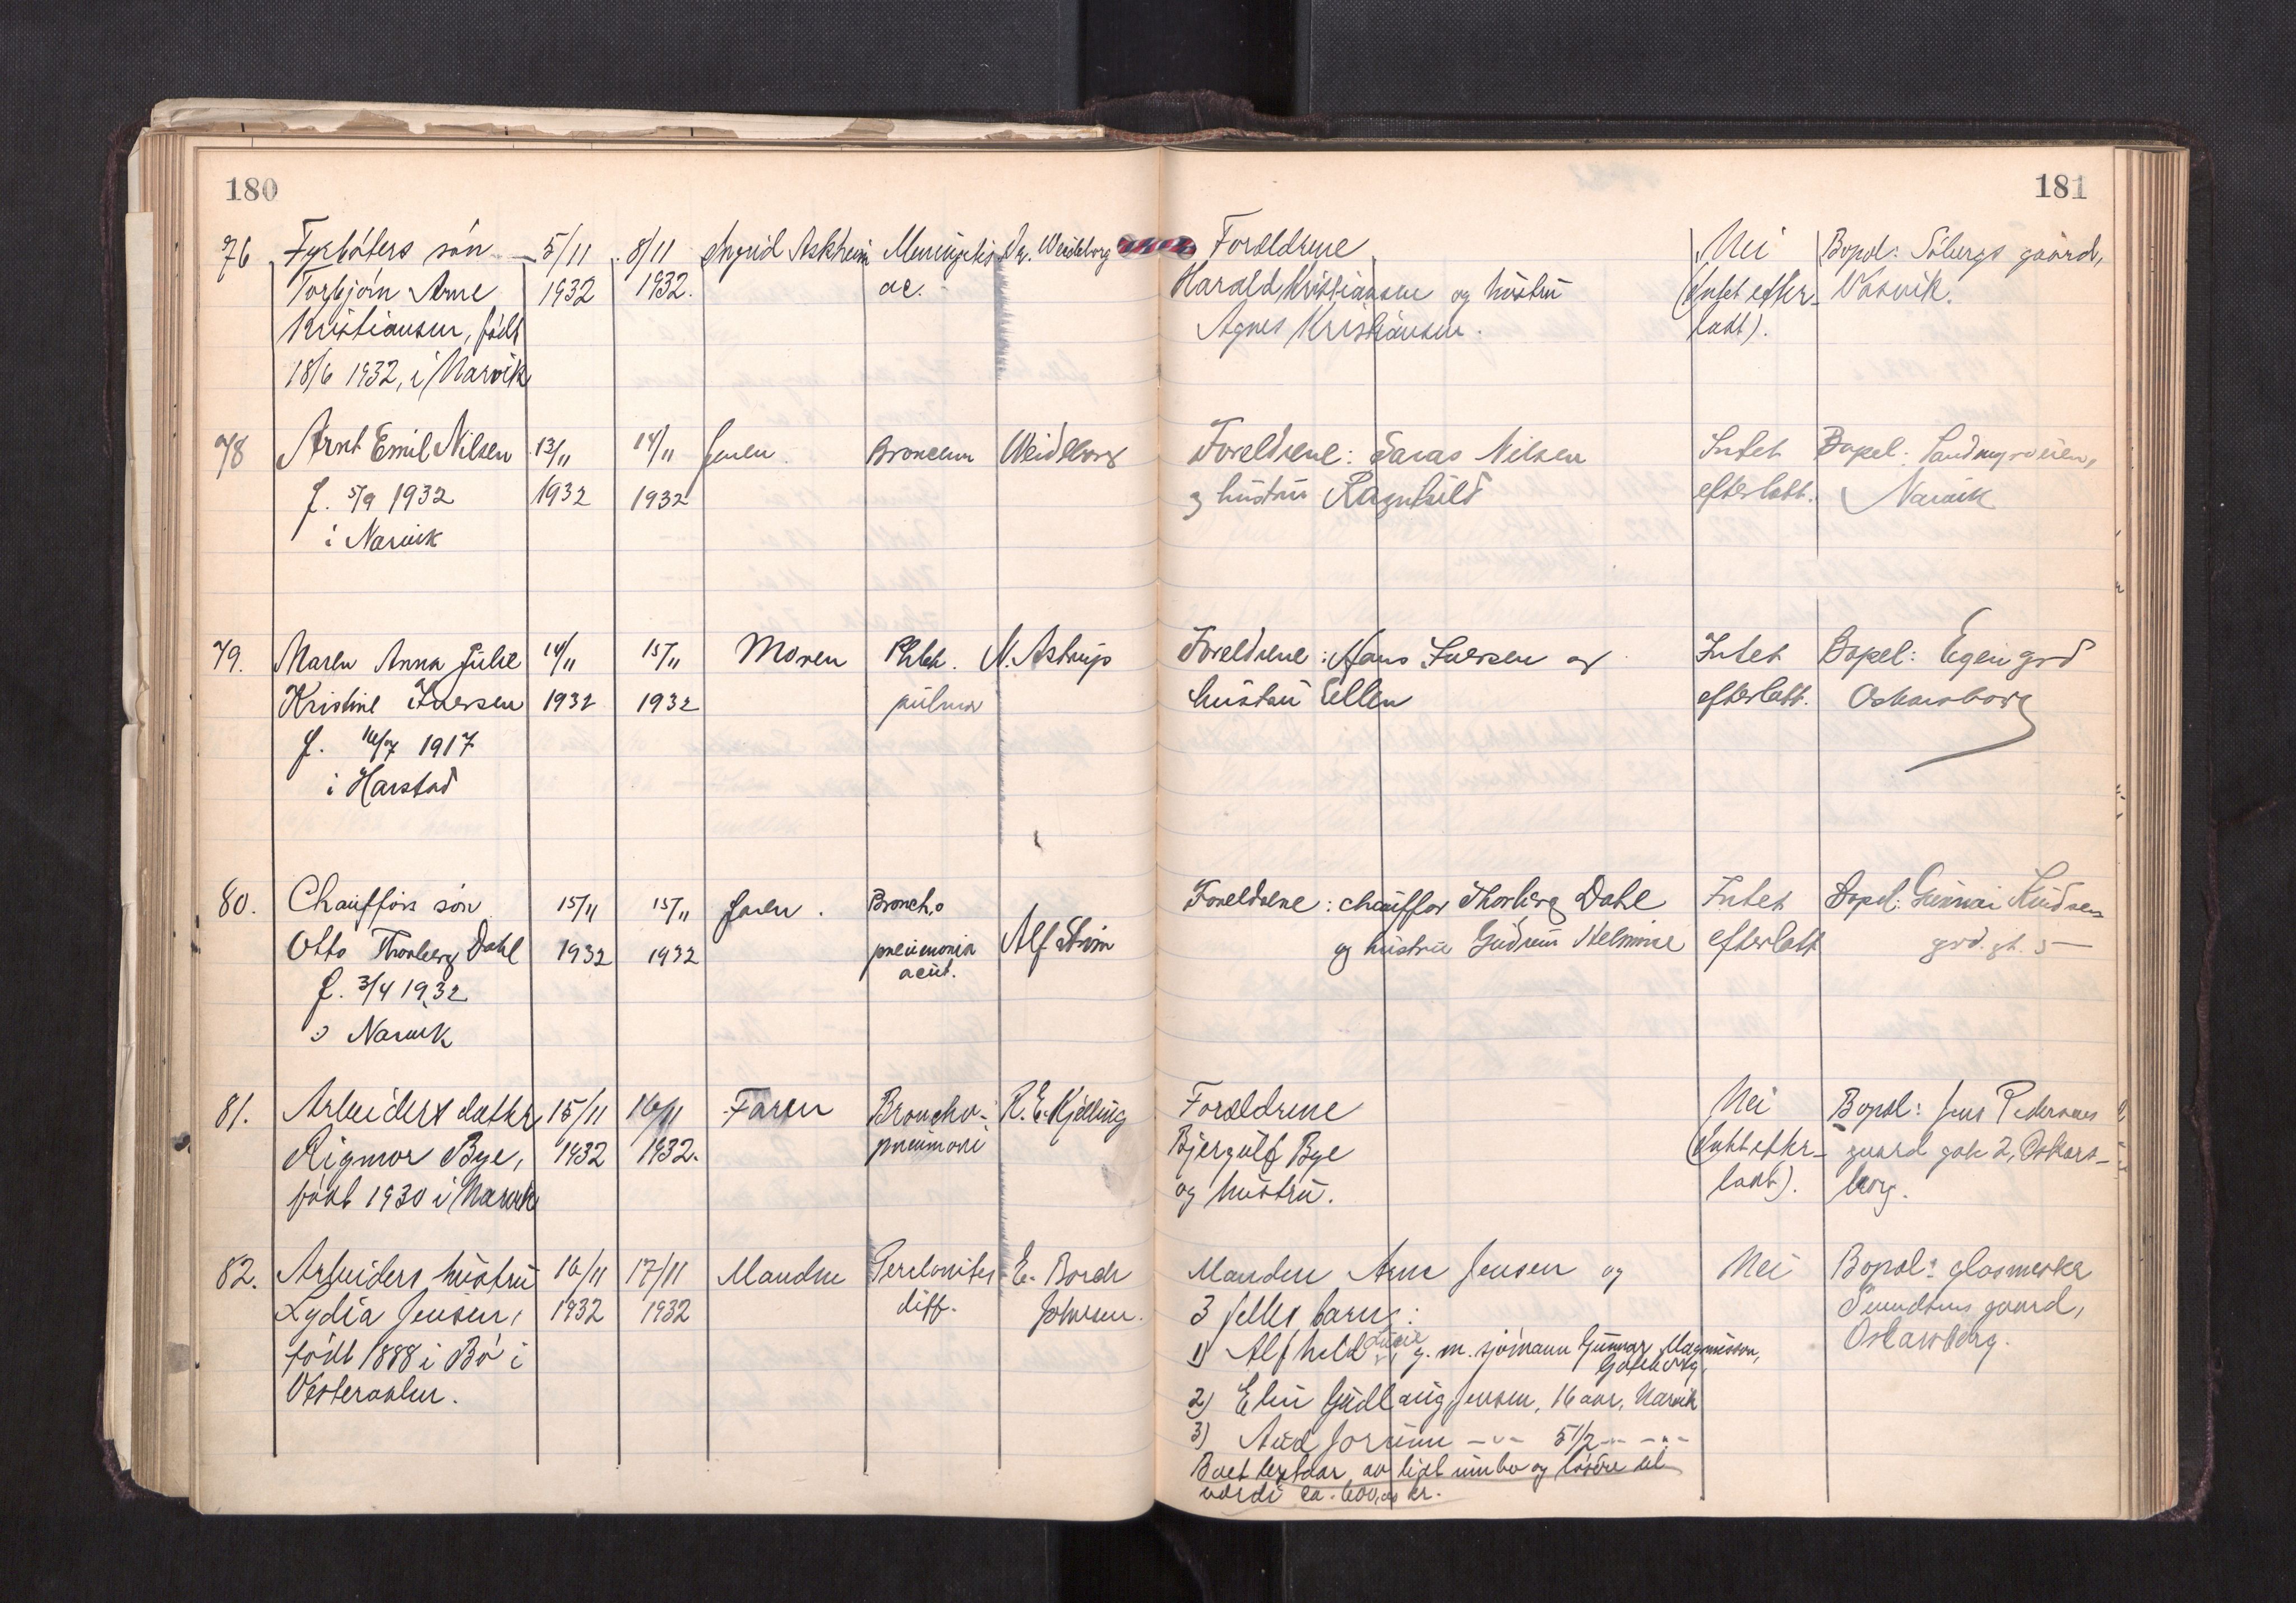 180
181
76 Fyrbøters søn 5/11 8/11 Ingrid Askheim Meningitis Dr. Weideborg Forældrene Nei Bopæl: Sobergs gaard,
Torbjørn Arne 1932 1932. ac. Harald Kristiansen og hustru (Intet efter- Vasvik.
Kristiansen, født Agnes Kristiansen. ladt).
18/6 1932, i Narvik
78 Arnt Emil Nilsen 13/11 14/11 Faren Weidborg Foreldrene: Nilsen Intet Bopel:
f. 5/9 1932 1932 1932 og hustru Ragnhild efterlatt. Narvik
i Narvik
79. Maren Anna Julie 14/11 15/11 Moren Phteh. N. Astrup Foreldrene: Hans Iversen og Intet Bopel: Egen grd
Kristine Iversen 1932 1932 pulmo hustru Ellen efterlatt. Oskarsborg
f. 16/7 1917
i Harstad
80. Chaufførs søn 15/11 15/11 Faren. Broncho Foreldrene: chauffør Thorberg Dahl Intet Bopel: Gunnar Knudsen
Otto Thorberg Dahl 1932 1932 pneumonia Alf Strøm og hustru Gudrun Helmine efterlatt grd. gt. 5
f. 3/4 1932 acut.
i Narvik
81. Arbeiders datter 15/11 16/11 Faren Broncho- R. E. Kjelling Forældrene Nei Bopæl: Jens Pedersens
Rigmor Bye, 1932 1932. pneumoni Bjergulf Bye (Intet efter- gaard gate 2, Oskars-
født 1930 i Narvik og hustru. ladt). borg.
82. Arbeiders hustru 16/11 17/11 Manden Peretonites E. Borch Manden Arne Jensen og Nei Bopæl: glasmester
Lydia Jensen, 1932 1932 diff. Johnsen. 3 felles barn: gaard,
født 1888 i Bø i 1) Alfhild g. m. sjømann Gunnar Magnusson, Oskarsborg.
Gøteborg,
Vesteraalen. 2) Elin Gudlaug Jensen, 16 aar, Narvik
3) Aud Jorunn -"- 5 1/2 -"- -"-
Boet bestaar av litet innbo og løsøre til
værdi ca. 600,00 kr.